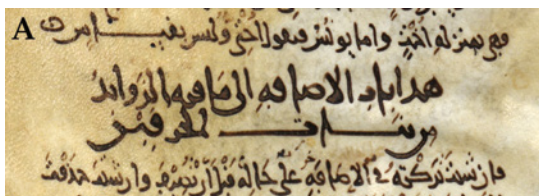 A
فهي بمنزله اخت واما يونس فيقول اختي وليس بقياس
هذا باب الاضافه الى ما فيه الزوائد
من بنات الحرفين
فان شئت تركته في الاضافه على حاله قبل ان تضيف وان شئت حذفت